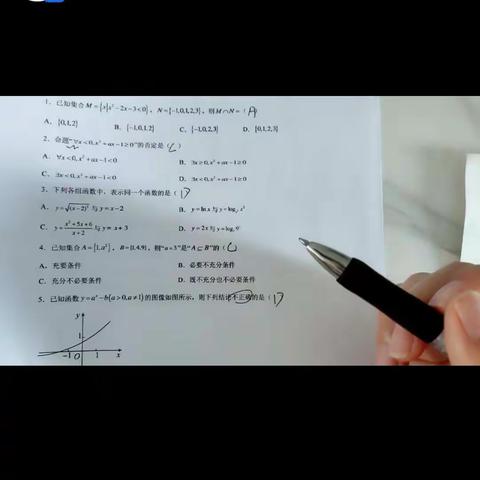 1. 已知集合 M={x|x²-2x-3<0}, N={-1,0,1,2,3}, 则 M∩N=( A )
A. {0,1,2} B. {-1,0,1,2} C. {-1,0,2,3} D. {0,1,2,3}
2. 命题“∀x<0,x²+ax-1≥0”的否定是( C )
A. ∀x<0,x²+ax-1<0 B. ∃x≥0,x²+ax-1≥0
C. ∃x<0,x²+ax-1<0 D. ∃x<0,x²+ax-1≥0
3. 下列各组函数中, 表示同一个函数的是( D
A. y=√(x-2)² 与 y=x-2 B. y=ln x 与 y=log
C. y=(x²+5x+6)/(x+2) 与 y=x+3 D. y=2x 与 y=log
4. 已知集合 A={1,a²}, B={1,4,9}, 则“a=3”是“A⊆B”的( C
A. 充要条件 B. 必要不充分条件
C. 充分不必要条件 D. 既不充分也不必要条件
5. 已知函数 y=aˣ-b(a>0,a≠1)的图像如图所示, 则下列结论不正确的是( D
y
1
-1 O 1 x